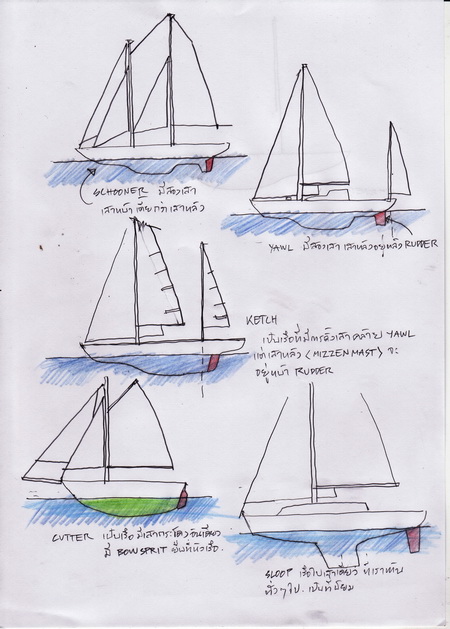 SCHOONER มีสองเสา
เสาหน้าเตี้ยกว่าเสาหลัง
YAWL มีสองเสา เสาหลังอยู่หลัง RUDDER
KETCH
เป็นเรือที่มีการตั้งเสาคล้าย YAWL
แต่เสาหลัง (MIZZEN MAST) จะ
อยู่หน้า RUDDER
CUTTER เป็นเรือมีเสากระโดงอันเดียว
มี BOWSPRIT ยื่นที่หัวเรือ.
SLOOP เรือใบเสาเดี่ยว ที่เราเห็น
ทั่วๆไป. เป็นที่นิยม